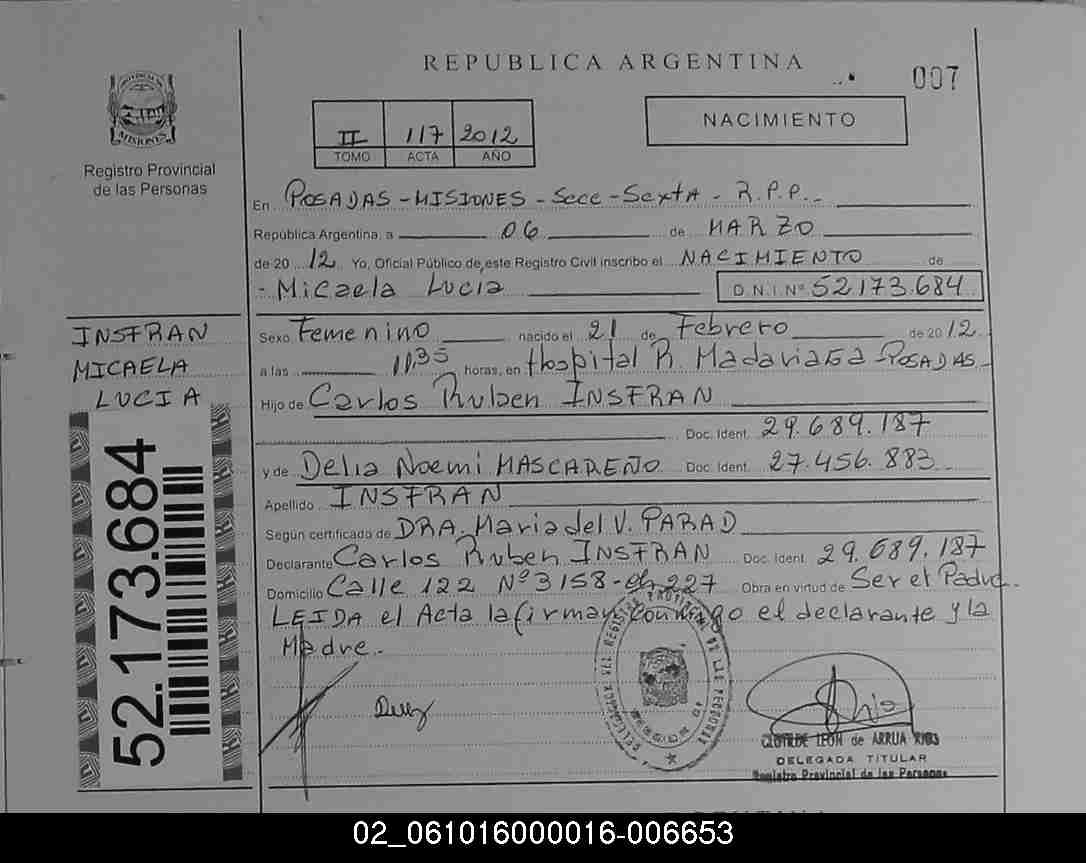 REPUBLICA ARGENTINA
007
PROVINCIA DE MISIONES
Registro Provincial
de las Personas
II 117 2012
TOMO ACTA AÑO
NACIMIENTO
En POSADAS - MISIONES - Secc - Sexta - R.P.P. -
República Argentina, a 06 de MARZO
de 20 12 Yo, Oficial Público de este Registro Civil inscribo el NACIMIENTO de
- Micaela Lucia D.N.I. Nº 52.173.684
INSFRAN
MICAELA
LUCIA
52.173.684
Sexo Femenino nacido el 21 de Febrero de 20 12
a las 11,35 horas, en Hospital R. Madariaga - POSADAS -
Hijo de Carlos Ruben INSFRAN
Doc. Ident. 29.689.187
y de Delia Noemi MASCAREÑO Doc. Ident. 27.456.883 -
Apellido INSFRAN
Según certificado de DRA. Maria del V. PARAD
Declarante Carlos Ruben INSFRAN Doc. Ident. 29.689.187
Domicilio Calle 122 Nº 3158 - 227 Obra en virtud de Ser el Padre -
LEIDA el Acta la firman conmigo el declarante y la
Madre -
CLOTILDE LEON de ARRUA RIOS
DELEGADA TITULAR
Registro Provincial de las Personas
02_061016000016-006653